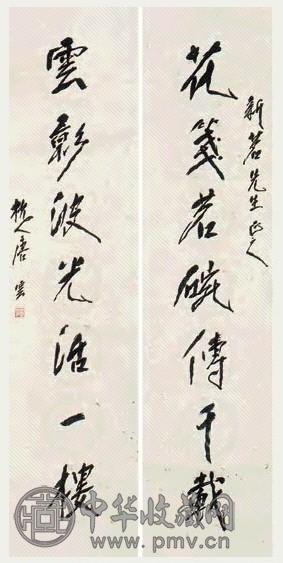 新茗先生正之
花箋茗碗傳千載
雲影波光活一樓
杭人唐雲
中华收藏网
www.pmv.cn